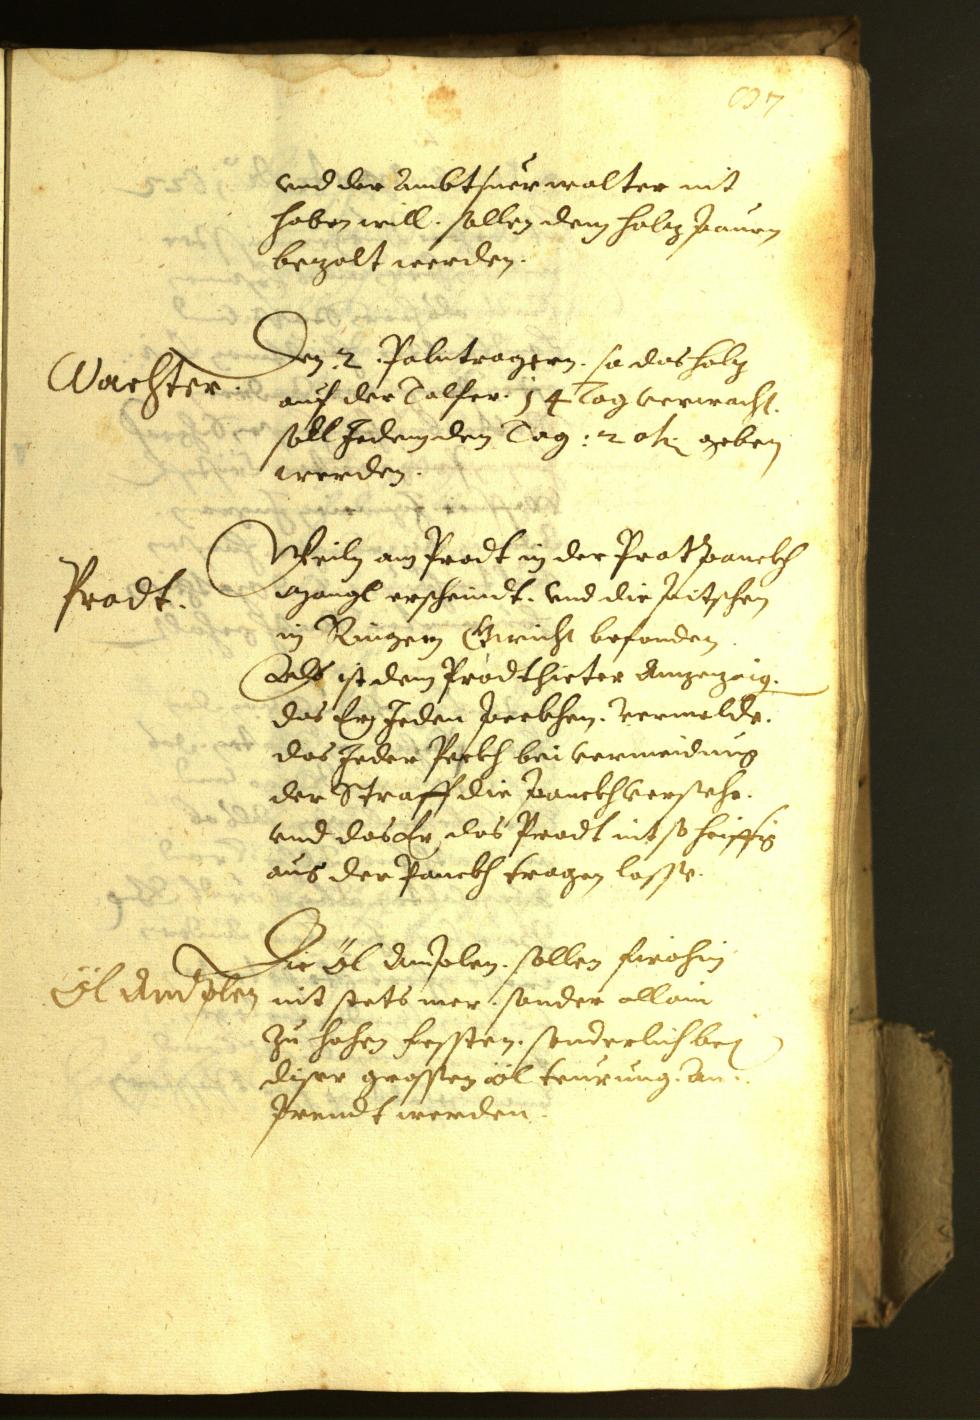 vnd der Ambtsverwalter nit
haben will. sollen dem holz Paurn
bezalt werden.
Wachter.
Den 2 Palntragern. so das holz
auf der Talfer. 14 Tag verwacht.
soll Jedem den Tag: 2 geben
werden.
Prodt.
Weiln am Prodt in der Protpanckh
Mangl erscheindt. vnd die
in Ringern Gwicht befonden.
Als ist dem Prodthieter Anzezaig.
das Er Jeden Peckhen. vermelde.
das Jeder Peckh bei vermeidung
der Straff die Panckh versehe.
vnd das Er das Prodt nit so heiffig
aus der Panckh tragen lasse.
Öl Amplen
Die Öl Amplen. sollen firohin
nit stets mer. sonder allain
zu hohen fessten. sonderlich bei
diser grossen öl teurung. an-
prendt werden.